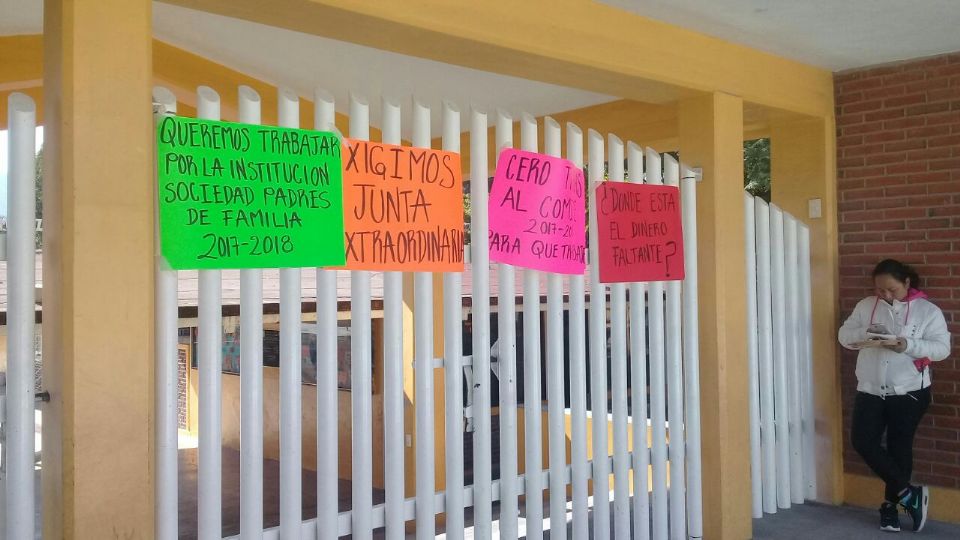 QUEREMOS TRABAJAR
POR LA INSTITUCION
SOCIEDAD PADRES
DE FAMILIA
2017-2018
XIGIMOS
JUNTA
XTRAORDINARIA
CERO
AL
2017-20
PARA QUE
¿DONDE ESTA
EL DINERO
FALTANTE?